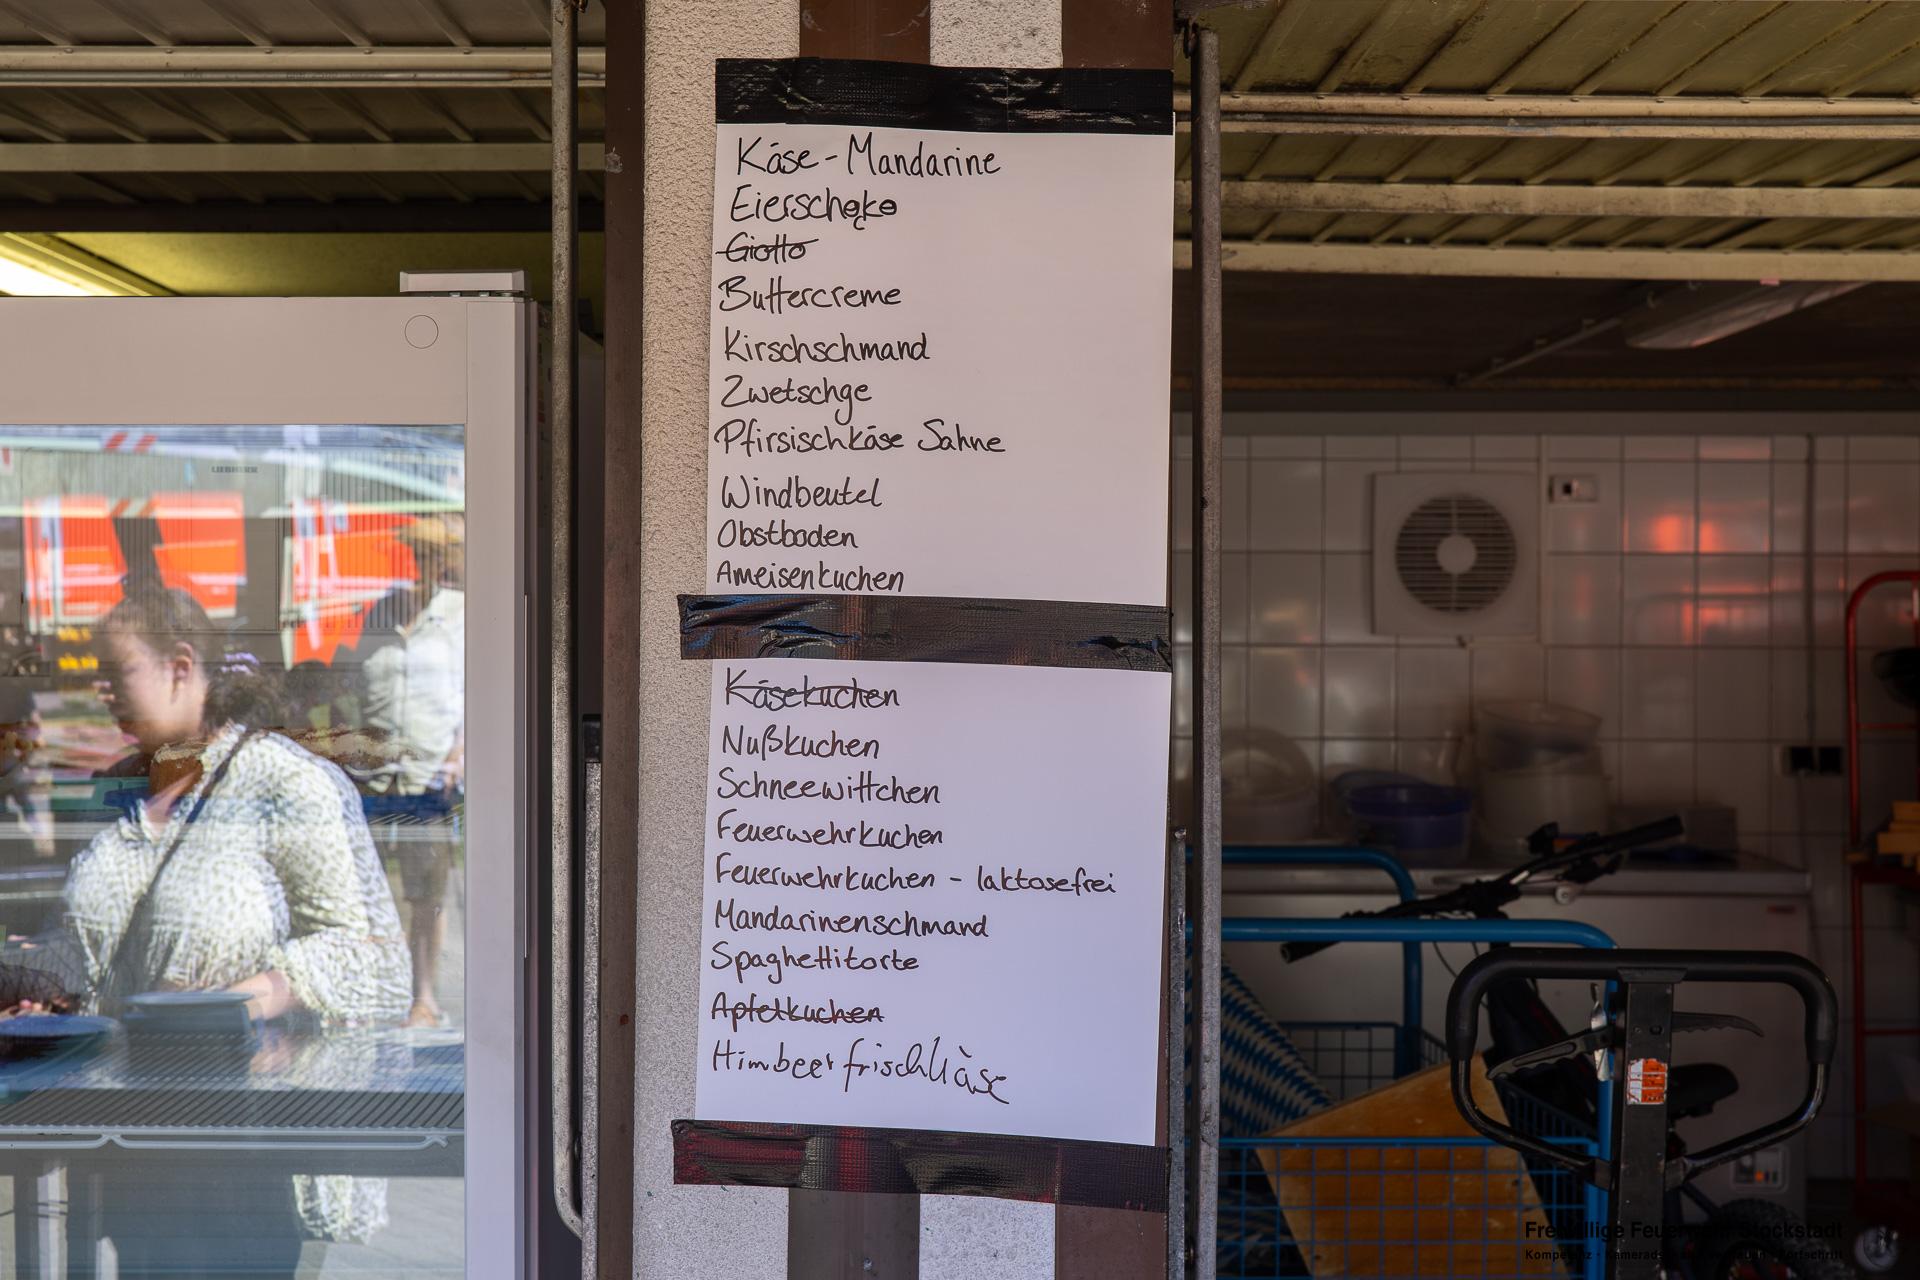 Käse-Mandarine
Eierschecke
Giotto
Buttercreme
Kirschschmand
Zwetschge
Pfirsischkäse Sahne
Windbeutel
Obstboden
Ameisenkuchen
Käsekuchen
Nußkuchen
Schneewittchen
Feuerwehrkuchen
Feuerwehrkuchen - laktosefrei
Mandarinenschmand
Spaghettitorte
Apfelkuchen
Himbeerfrischkäse
LIEBHERR
Freiwillige Feuerwehr Stockstadt